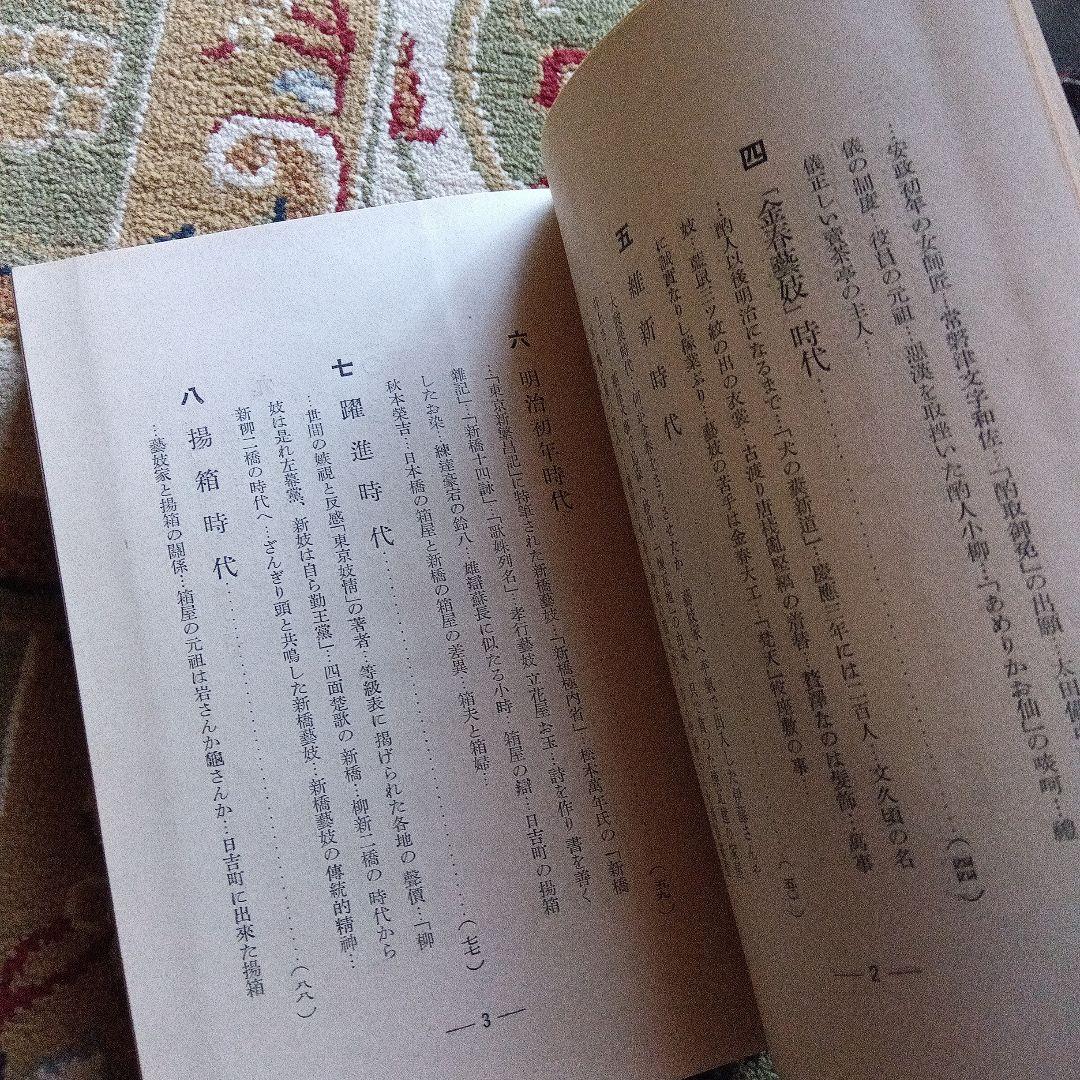 …安政初年の女師匠…常磐津文字和佐…「酌取御免」の出願…太田備
儀の制度…役員の元祖…惡漢を取挫いた酌人小柳…「あめりかお仙」の啖呵…禮
儀正しい寶茶亭の主人…
四 「金春藝妓」時代……………(四四)
…酌人以後明治になるまで…「犬の糞新道」…慶應三年には二百人…文久頃の名
妓…藍鼠三ツ紋の出の衣裳…古渡り唐桟の着替…贅澤なのは髮飾…萬事
に誠實なりし稼業ぶり…藝妓の苦手は金春大工…
五 維新時代……………(五一)
六 明治初年時代……………(五九)
…「東京新繁昌記」に特筆された新橋藝妓…「新橋極內省」…松本萬年氏の「新橋
雜記」…「新橋十四詠」…「歌妹列名」…孝行藝妓 立花屋お玉…詩を作り 書を善く
したお染…練達豪宕の鈴八…雄辯蘇長に似たる小時…箱屋の辯…日吉町の揚箱
秋本榮吉…日本橋の箱屋と新橋の箱屋の差異…箱夫と箱婦…
七 躍進時代……………(七七)
…世間の嫉視と反感「東京妓情」の著者…等級表に揭げられた各地の聲價…「柳
妓は是れ左幕黨、新妓は自ら勤王黨」…四面楚歌の 新橋…柳新二橋の 時代から
新柳二橋の時代へ…ざんぎり頭と共鳴した新橋藝妓…新橋藝妓の傳統的精神…
八 揚箱時代……………(八八)
…藝妓家と揚箱の關係…箱屋の元祖は岩さんか龜さんか…日吉町に出來た揚箱
— 2 —
— 3 —